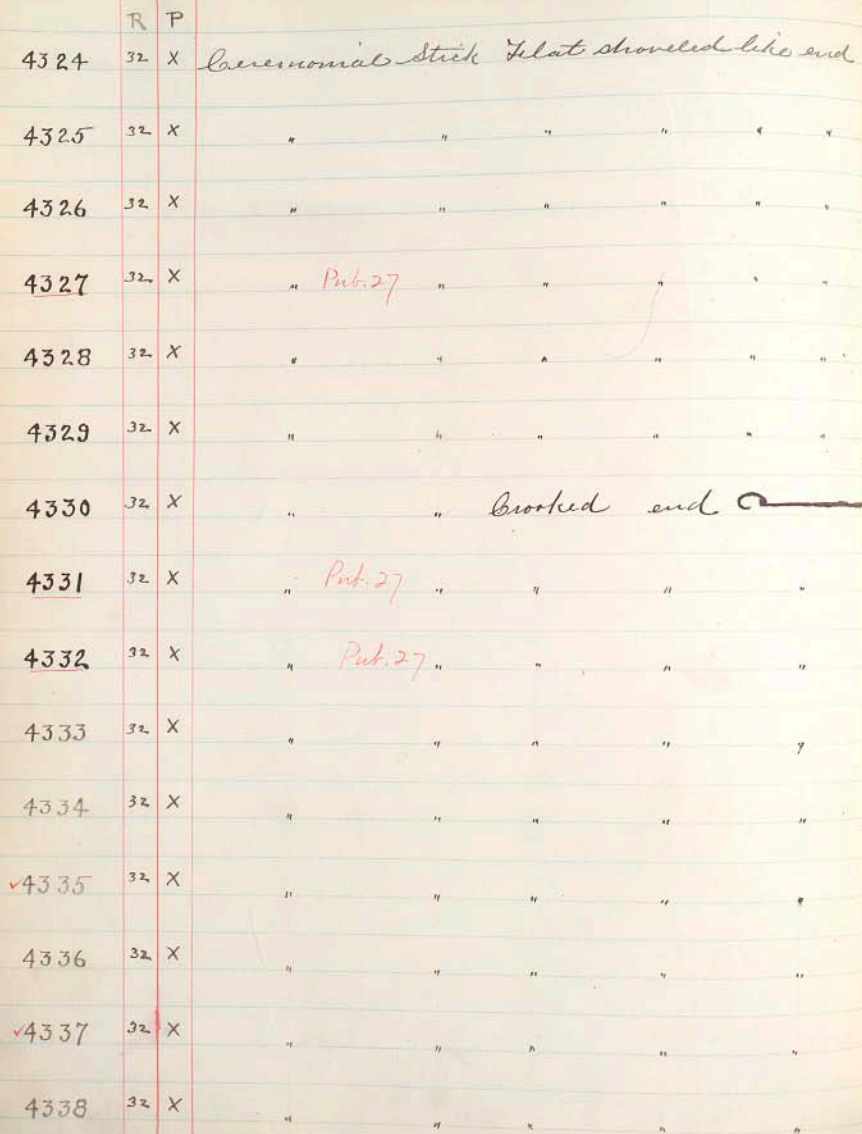 R P
4324 32 X Ceremonial Stick Flat shoveled like end
4325 32 X " " " " " "
4326 32 X " " " " " "
4327 32 X " Pub. 27 " " " " "
4328 32 X " " " " " "
4329 32 X " " " " " "
4330 32 X " " Crooked end
4331 32 X " Pub. 27 " " " "
4332 32 X " Pub. 27 " " " "
4333 32 X " " " " "
4334 32 X " " " " "
✓4335 32 X " " " " "
4336 32 X " " " " "
✓4337 32 X " " " " "
4338 32 X " " " " "